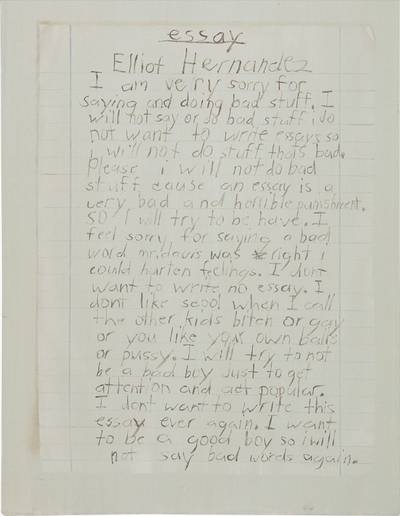 essay
Elliot Hernandez
I am very sorry for
saying and doing bad stuff. I
will not say or do bad stuff i do
not want to write essays so
i will not do stuff thats bad.
Please i will not do bad
stuff cause an essay is a
very bad and horrible punishment.
so I will try to be have. I
feel sorry for saying a bad
word mr.davis was right i
could harten feelings. I dont
want to write no essay. I
dont like scool when I call
the other kids bitch or gay
or you like your own balls
or pussy. I will try to not
be a bad boy just to get
attention and act popular.
I dont want to write this
essay ever again. I want
to be a good boy so i will
not say bad words again.